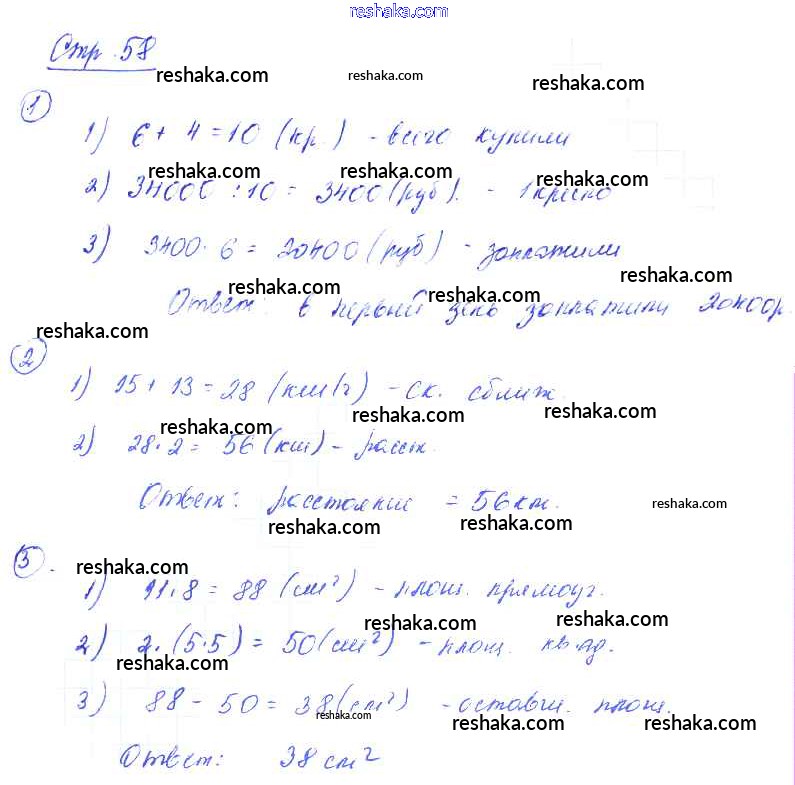 reshaka.com
Стр. 58
reshaka.com reshaka.com reshaka.com
1
1) 6 + 4 = 10 (кр.) - всего купили
reshaka.com reshaka.com reshaka.com
2) 34000 : 10 = 3400 (руб). - 1 кресло
3) 3400 · 6 = 20400 (руб) - заплатили
reshaka.com reshaka.com reshaka.com
Ответ: в первый день заплатили 20400р.
reshaka.com
2
1) 15 + 13 = 28 (км/ч) - ск. сближ.
reshaka.com reshaka.com reshaka.com
2) 28 · 2 = 56 (км) - расст.
Ответ: расстояние = 56 км.
reshaka.com reshaka.com reshaka.com
3.
reshaka.com
1) 11 · 8 = 88 (см²) - площ. прямоуг.
reshaka.com reshaka.com
2) 2 · (5 · 5) = 50 (см²) - площ. квад.
reshaka.com
3) 88 - 50 = 38 (см²) - оставш. площ.
reshaka.com reshaka.com reshaka.com
Ответ: 38 см²